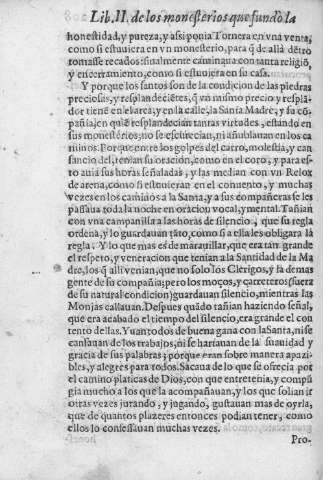 Lib. II. de los monesterios que fundò la
honestidad, y pureza, y assi ponia Tornera en vna venta,
como si estuuiera en vn monesterio, para q̃ de allà dẽtro
tomasse recados: finalmente caminaua con tanta religiõ,
y encerramiento, como si estuuiera en su casa.
Y porque los santos son de la condicion de las piedras
preciosas, y resplandeciẽtes, q̃ vn mismo precio y resplã-
dor tienẽ en el arca, y en la calle, la Santa Madre, y su cõ-
pañia, en quiẽ resplandeciãn tantas virtudes, estando en
sus monesterios, no se escurecian, ni añublauan en los ca
minos. Porque entre los golpes del carro, molestia, y can
sancio del, tenian su oracion, como en el coro, y para es-
to auia sus horas señaladas, y las median con vn Relox
de arena, como si estuuieran en el conuento, y muchas
vezes en los caminos a la Santa, y a sus compañeras se les
passaua toda la noche en oracion vocal, y mental. Tañian
con vna campanilla a las horas de silencio, que su regla
ordena, y lo guardauan tãto, como si a ella les obligara la
regla. Y lo que mas es de marauillar, que era tan grande
el respeto, y veneracion que tenian a la Santidad de la Ma
dre, los q̃ alli venian, que no solo los Clerigos, y la demas
gente de su compañia; pero los moços, y carreteros (fuera
de su natural condicion) guardauan silencio, mientras las
Monjas callauan. Despues quãdo tañian haziendo señal,
que era acabado el tiempo del silencio, era grande el con
tento dellas. Yuan todos de buena gana con la Santa, ni se
cansauan de los trabajos, ni se hartauan de la suauidad y
gracia de sus palabras; porque eran sobre manera apazi-
bles, y alegres para todos. Sacaua de lo que se ofrecia por
el camino platicas de Dios, con que entretenia, y compũ
gia mucho a los que la acompañauan, y los que solian ir
otras vezes jurando, y jugando, gustauan mas de oyrla,
que de quantos plazeres entonces podian tener, como
ellos lo confessauan muchas vezes.
Pro-